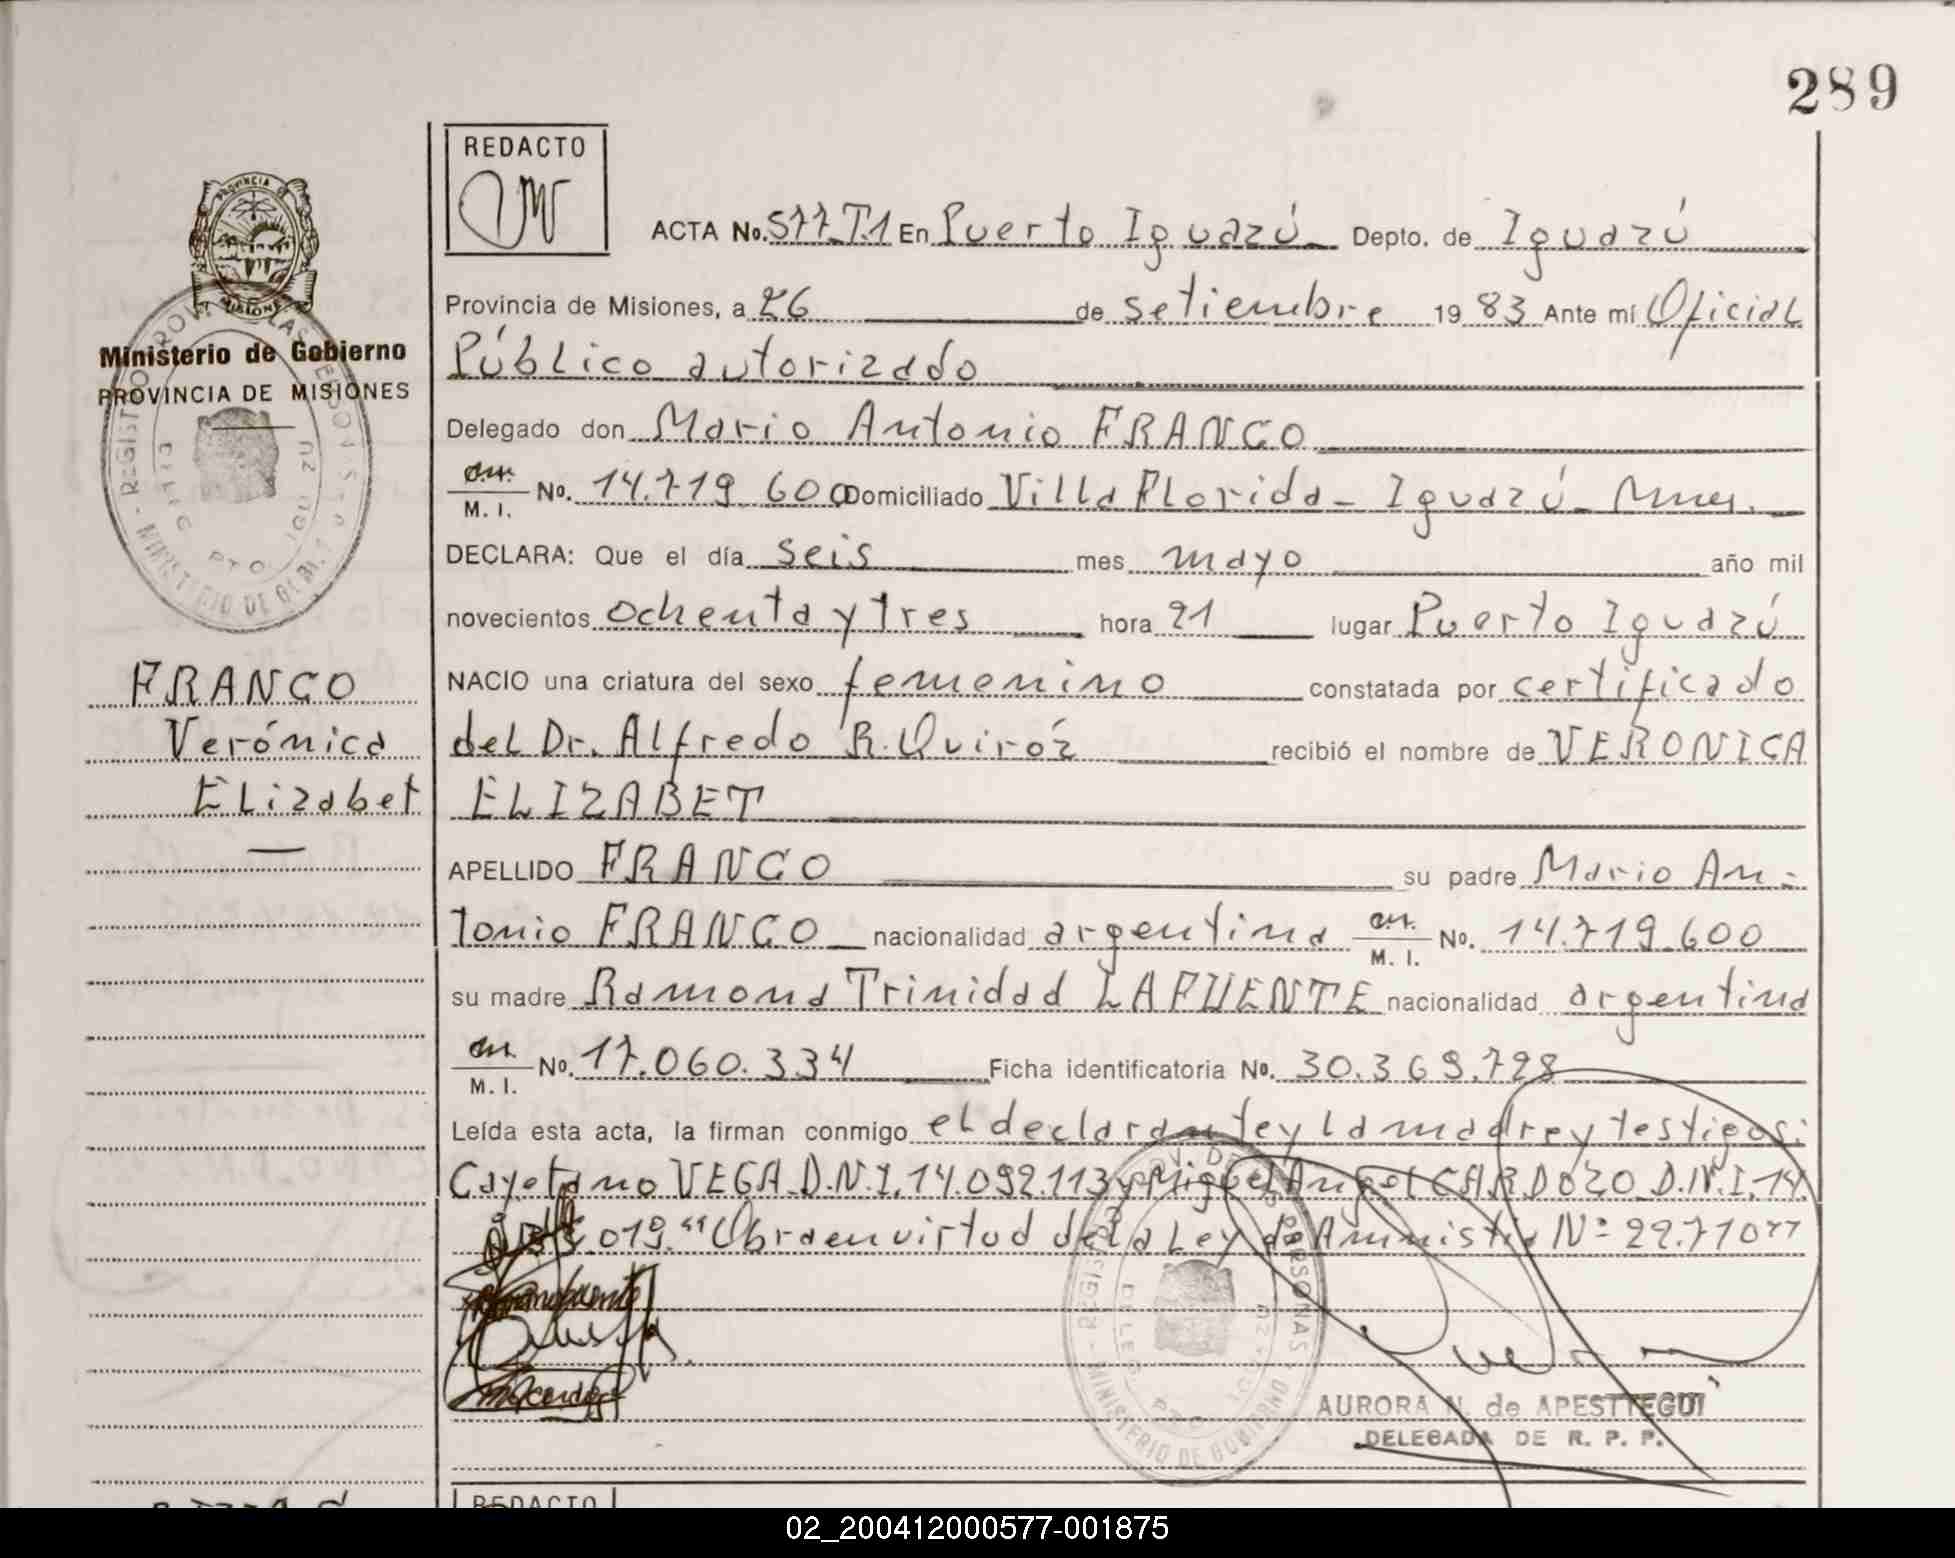 289
REDACTO
ACTA No. 577-T.1 En Puerto Iguazú Depto. de Iguazú
Provincia de Misiones, a 26 de setiembre 19 83 Ante mí Oficial
Ministerio de Gobierno
PROVINCIA DE MISIONES
Público autorizado
Delegado don Mario Antonio FRANCO
M. I. No. 14.719.600 Domiciliado Villa Florida - Iguazú - Mnes.
DECLARA: Que el día seis mes mayo año mil
novecientos ochenta y tres hora 21 lugar Puerto Iguazú
FRANCO
Verónica
Elizabet
NACIO una criatura del sexo femenino constatada por certificado
del Dr. Alfredo R. Quiróz recibió el nombre de VERONICA
ELIZABET
APELLIDO FRANCO su padre Mario An-
tonio FRANCO nacionalidad argentina M. I. No. 14.719.600
su madre Ramona Trinidad LAFUENTE nacionalidad argentina
M. I. No. 17.060.334 Ficha identificatoria No. 30.369.728
Leída esta acta, la firman conmigo el declarante y la madre y testigos:
Cayetano VEGA D.N.I. 14.092.113 y Miguel Angel CARDOZO D.N.I. 14.
019. "Obra en virtud de la Ley de Amnistia Nº 22.710"
AURORA N. de APESTTEGUI
DELEGADA DE R. P. P.
REDACTO
02_200412000577-001875